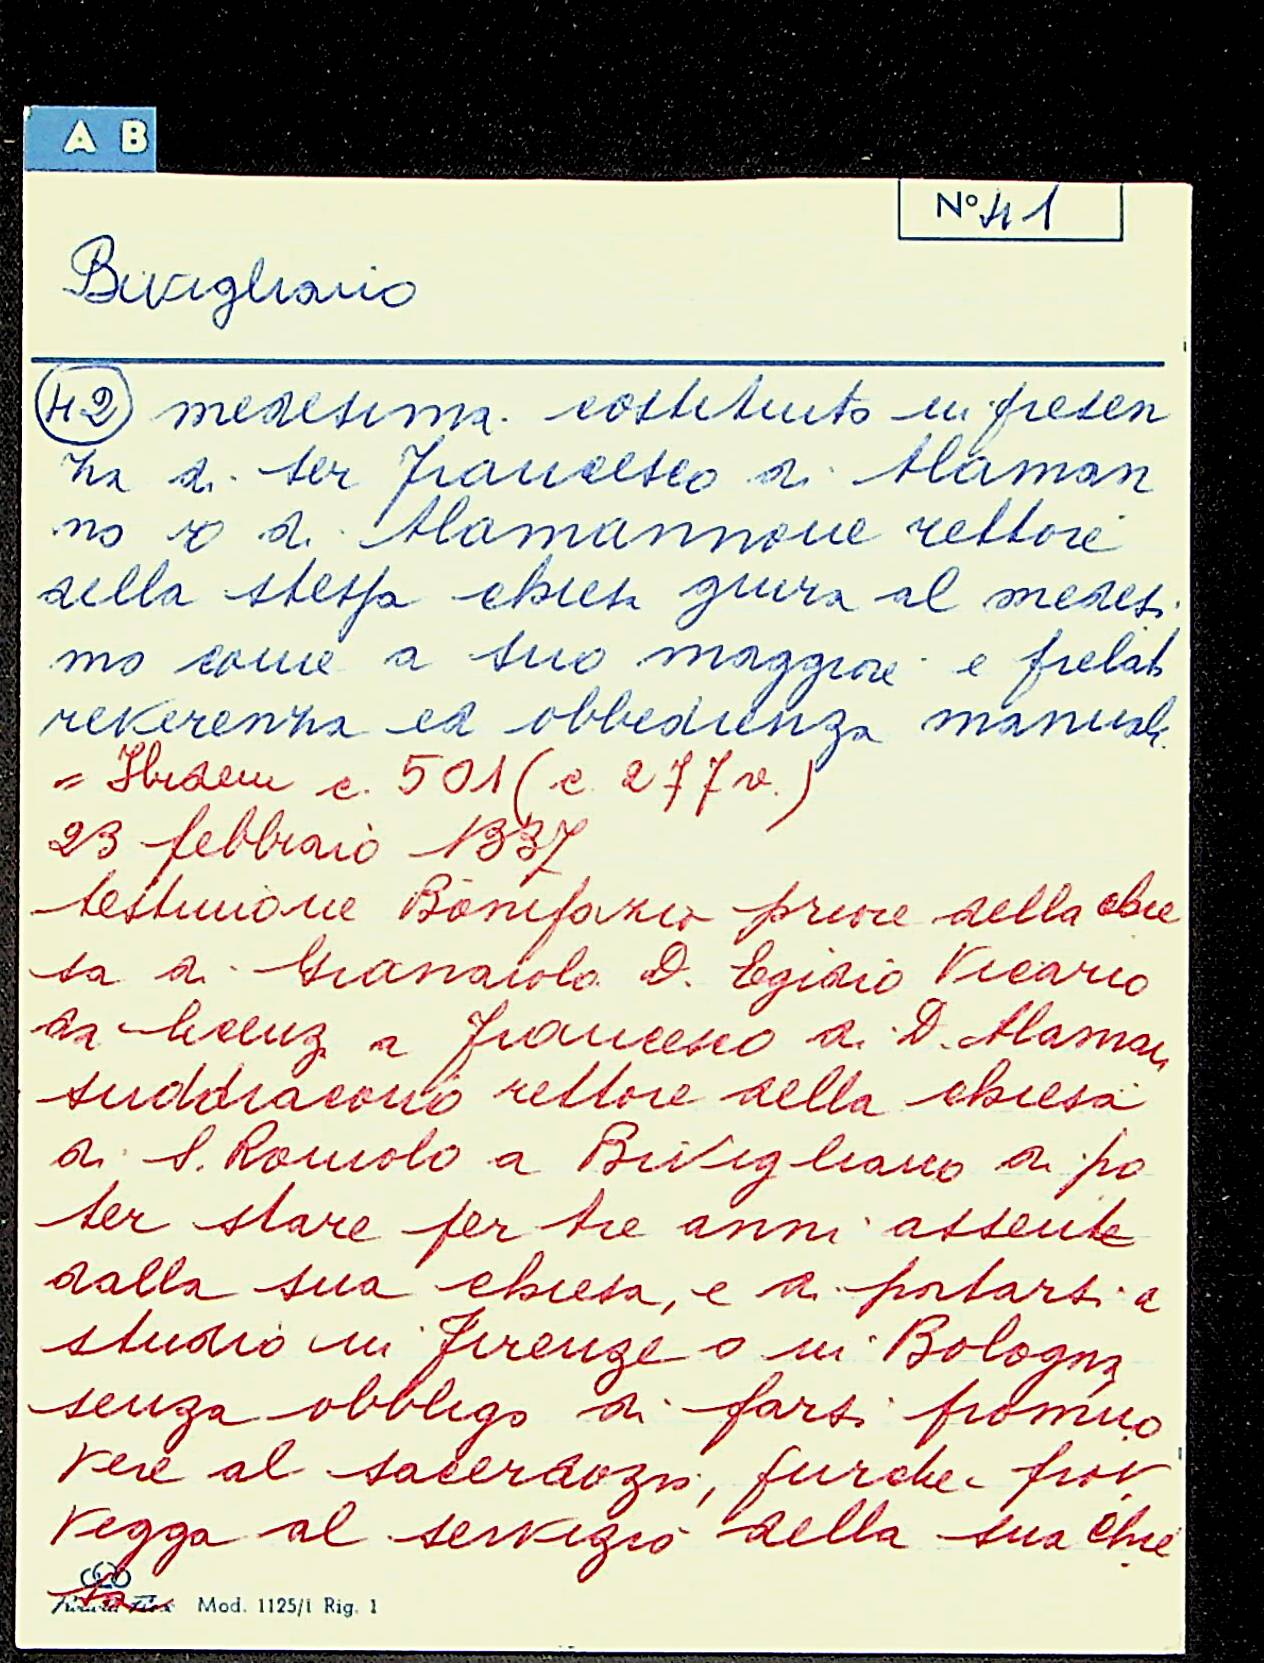 A B
N° 41
Bivigliano
42 medesima. costituito in presen
za di ser Francesco di Alaman
no di Alamannone rettore
della stessa chiesa giura al medesi
mo come a suo maggiore e prelato
reverenza ed obbedienza manuale.
= Ibidem c. 501 (c. 277 v.)
23 febbraio 1337
testimone Bonifazio priore della chie
sa di D. Egidio Vicario
da licenza a Francesco di D. Alaman
suddiacono rettore della chiesa
di S. Romolo a Bivigliano di po
ter stare per tre anni assente
dalla sua chiesa, e di portarsi a
studio in Firenze o in Bologna
senza obbligo di farsi promuo
vere al sacerdozio, purche prov
vegga al servizio della sua chie
sa
Mod. 1125/1 Rig. 1